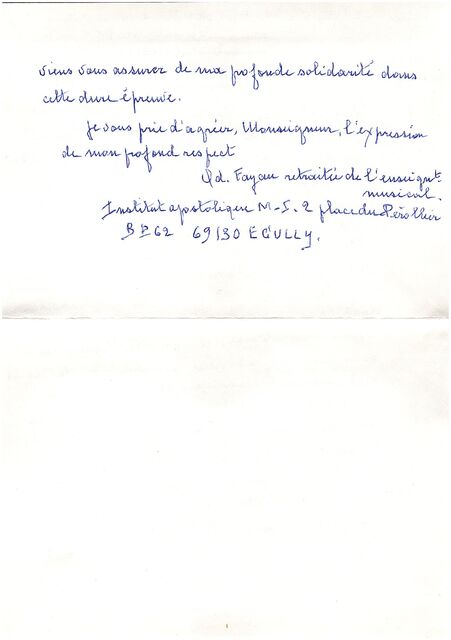 viens vous assurer de ma profonde solidarité dans
cette dure épreuve.
Je vous prie d'agréer, Monseigneur, l'expression
de mon profond respect
d. Fayau retraitée de l'enseignt
musical.
Institut apostolique M-J. 2 place du Pérollier
BP 62 69130 ECULLY.